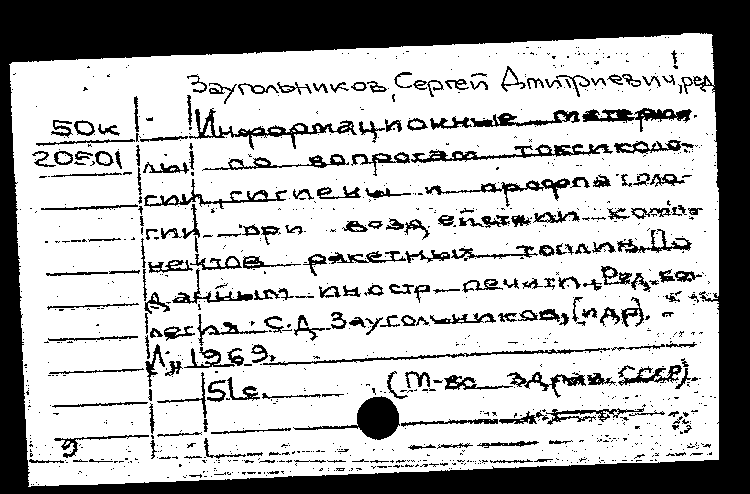 Заугольников, Сергей Дмитриевич, ред.
50к - Информационные материа-
20501 лы по вопросам токсиколо-
гии, гигиены и профпатоло-
гии при воздействии компо-
нентов ракетных топлив. По
данным иностр. печати. Ред. ко-
легия: С.Д. Заугольников, [и др]. -
Л., 1969.
51 с. (М-во здрав. СССР)
9